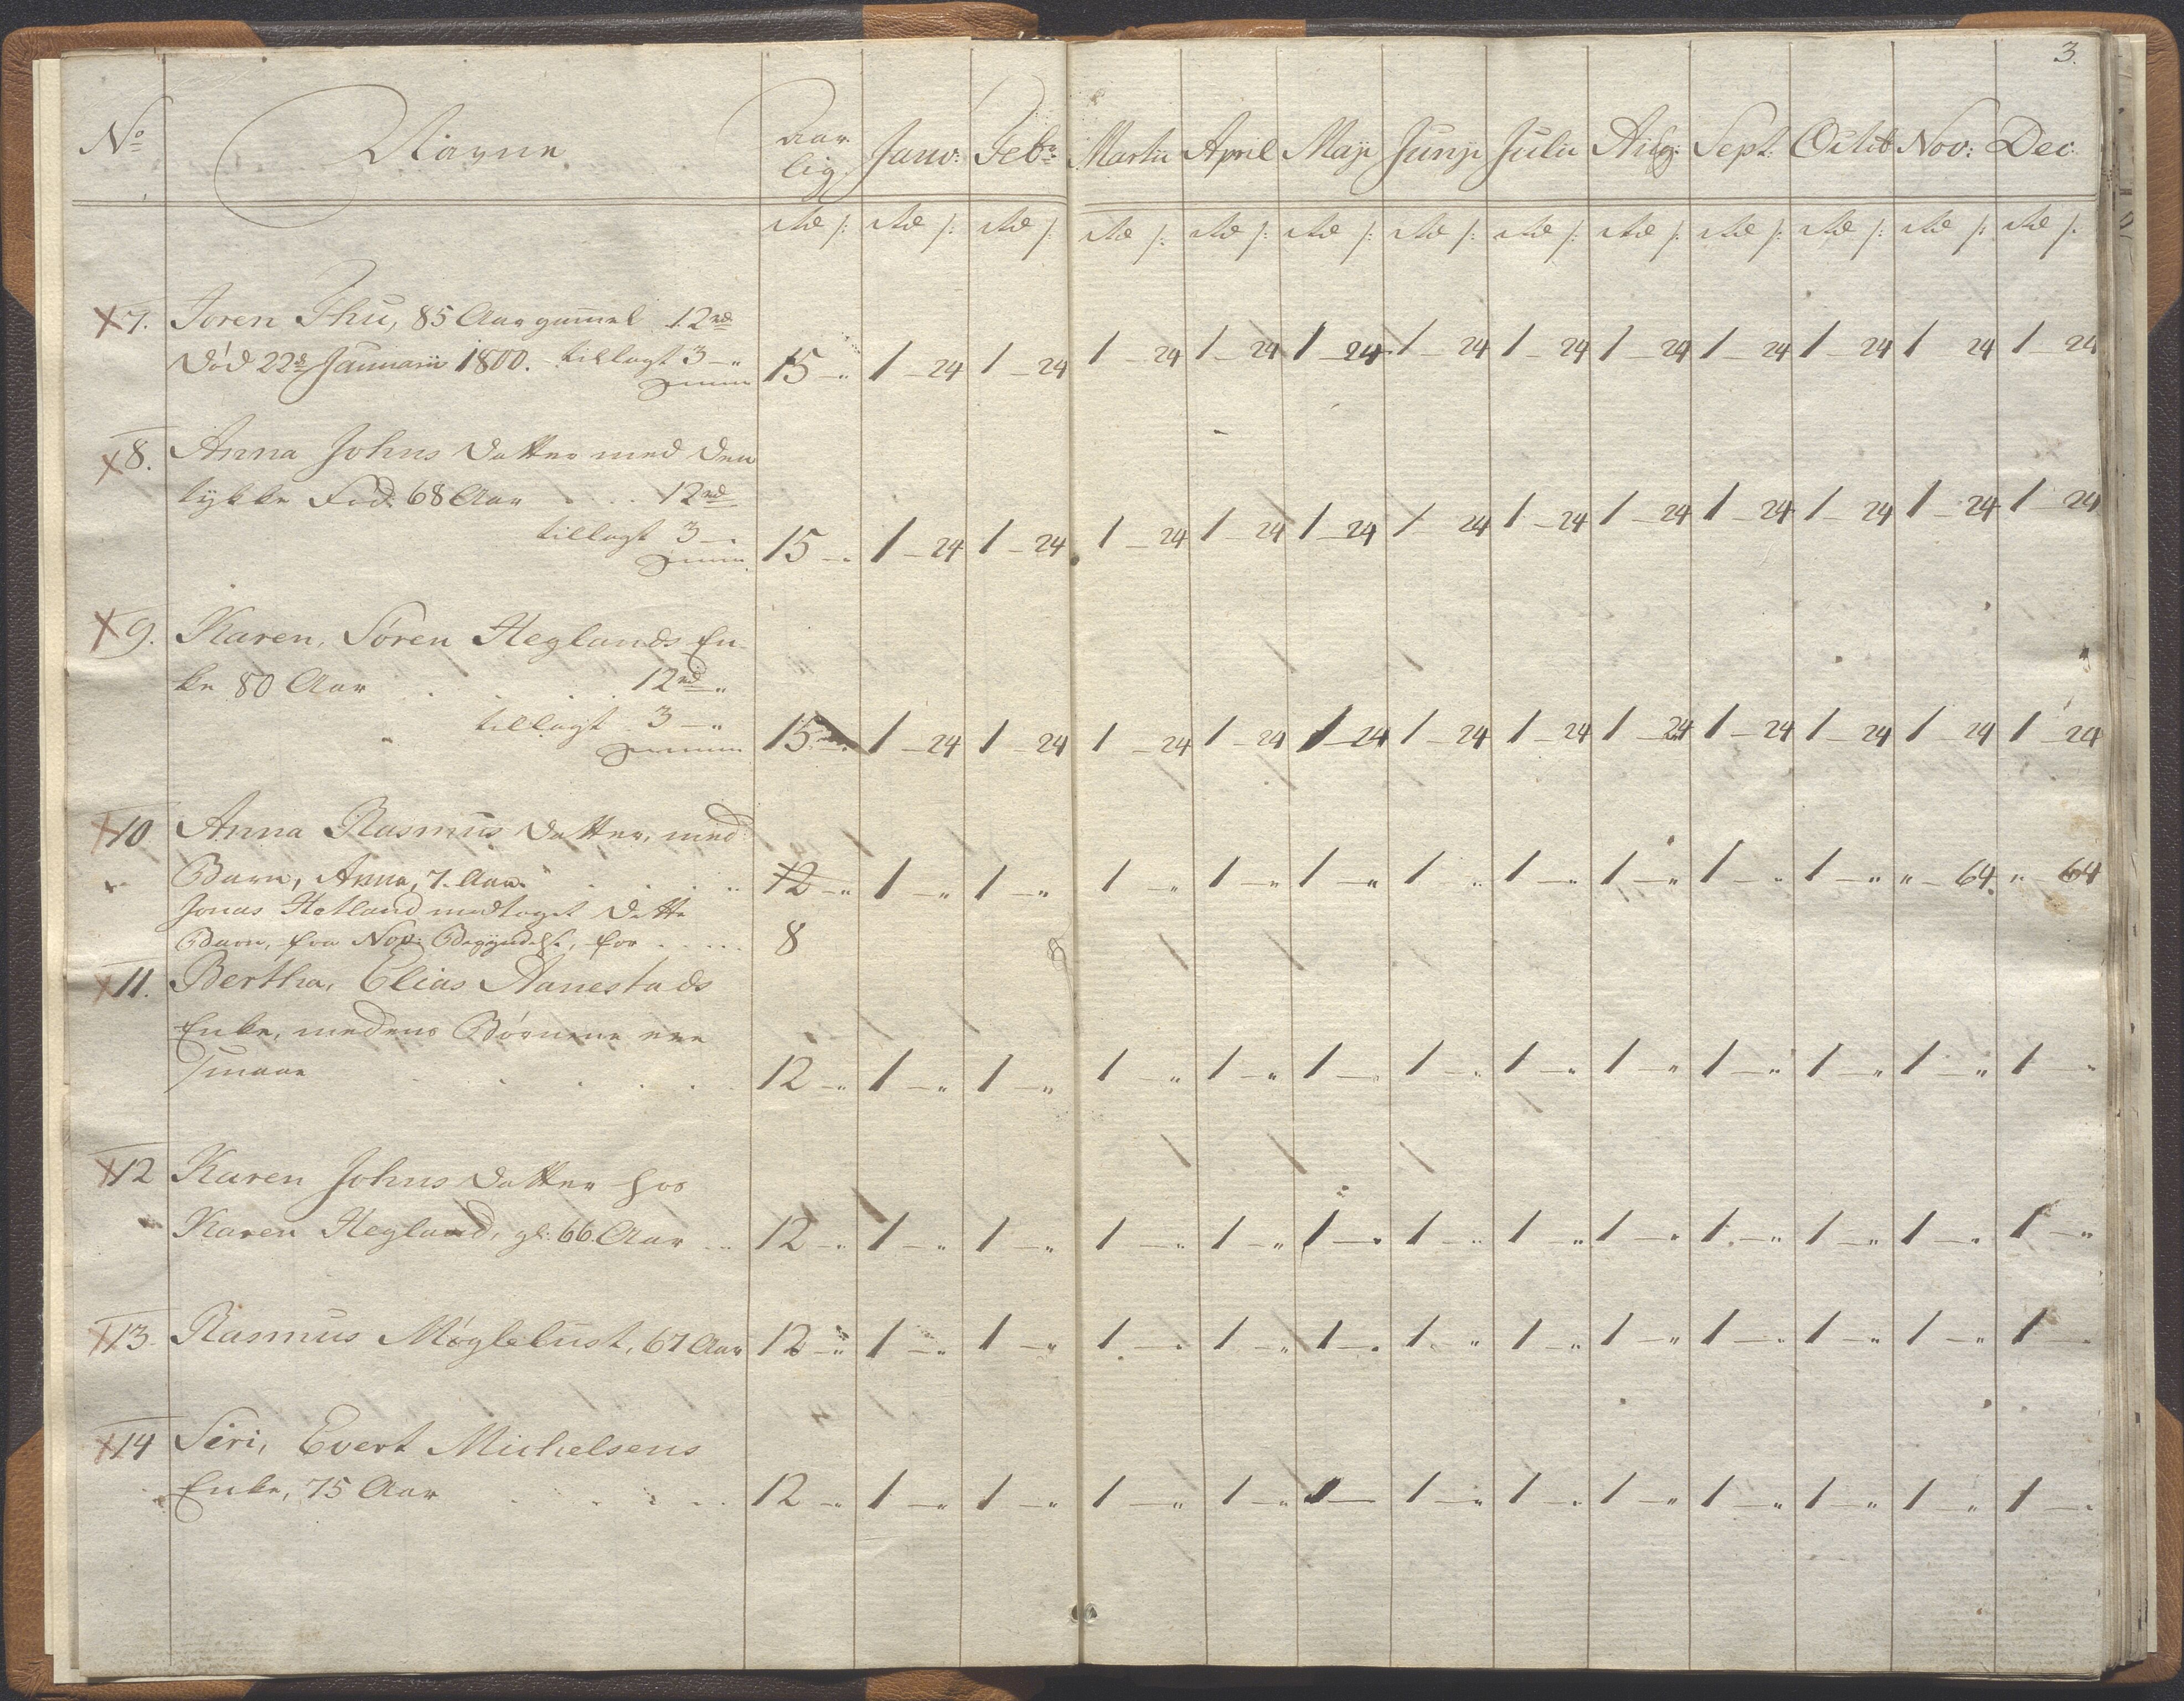 3.
No Navne Aar Janv: Febr: Martii April Maji Junji Julii Aug: Sept: Octob Nov: Dec
lig.
Rd s: Rd s: Rd s: Rd s: Rd s: Rd s: Rd s: Rd s: Rd s: Rd s: Rd s: Rd s: Rd s:
x7. Joren Thu, 85 Aar gammel 12 rd
Død 22de Januarii 1800. tillagt 3 — " 15 — " 1 — 24 1 — 24 1 — 24 1 — 24 1 — 24 1 — 24 1 — 24 1 — 24 1 — 24 1 — 24 1 24 1 — 24
x8. Anna Johns Datter med den
tykke Fod. 68 Aar . . . 12 rd
tillagt 3 — " 15 — " 1 — 24 1 — 24 1 — 24 1 — 24 1 — 24 1 — 24 1 — 24 1 — 24 1 — 24 1 — 24 1 — 24 1 — 24
x9. Karen, Søren Heglands En
ke 80 Aar . . . . 12 rd "
tillagt 3 — " 15 — " 1 — 24 1 — 24 1 — 24 1 — 24 1 — 24 1 — 24 1 — 24 1 — 24 1 — 24 1 — 24 1 — 24 1 — 24
x10 Anna Rasmus Datter, med
Barn, Anna, 7. Aar. . . . . 12 — " 1 — " 1 — " 1 — " 1 — " 1 — " 1 — " 1 — " 1 — " 1 — " 1 — " " — 64. " — 64
Jonas Hetland modtaget dette
Barn, fra Nov: Begyndelse, for . . . . . 8
x11. Bertha, Elias Aanestads
Enke, medens Børnene ere
smaae . . . . . . 12 — " 1 — " 1 — " 1 — " 1 — " 1 — " 1 — " 1 — " 1 — " 1 — " 1 — " 1 — " 1 — "
x12 Karen Johns Datter hos
Karen Hegland, gl: 66. Aar . . 12 — " 1 — " 1 — " 1 — " 1 — " 1 — " 1 — " 1 — " 1 — " 1 — " 1 — " 1 — " 1 — "
x13. Rasmus Møglelust, 67 Aar 12 — " 1 — " 1 — " 1 — " 1 — " 1 — " 1 — " 1 — " 1 — " 1 — " 1 — " 1 — " 1 — "
x14 Siri, Evert Michelsens
Enke, 75 Aar . . . . . 12 — " 1 — " 1 — " 1 — " 1 — " 1 — " 1 — " 1 — " 1 — " 1 — " 1 — " 1 — " 1 — "